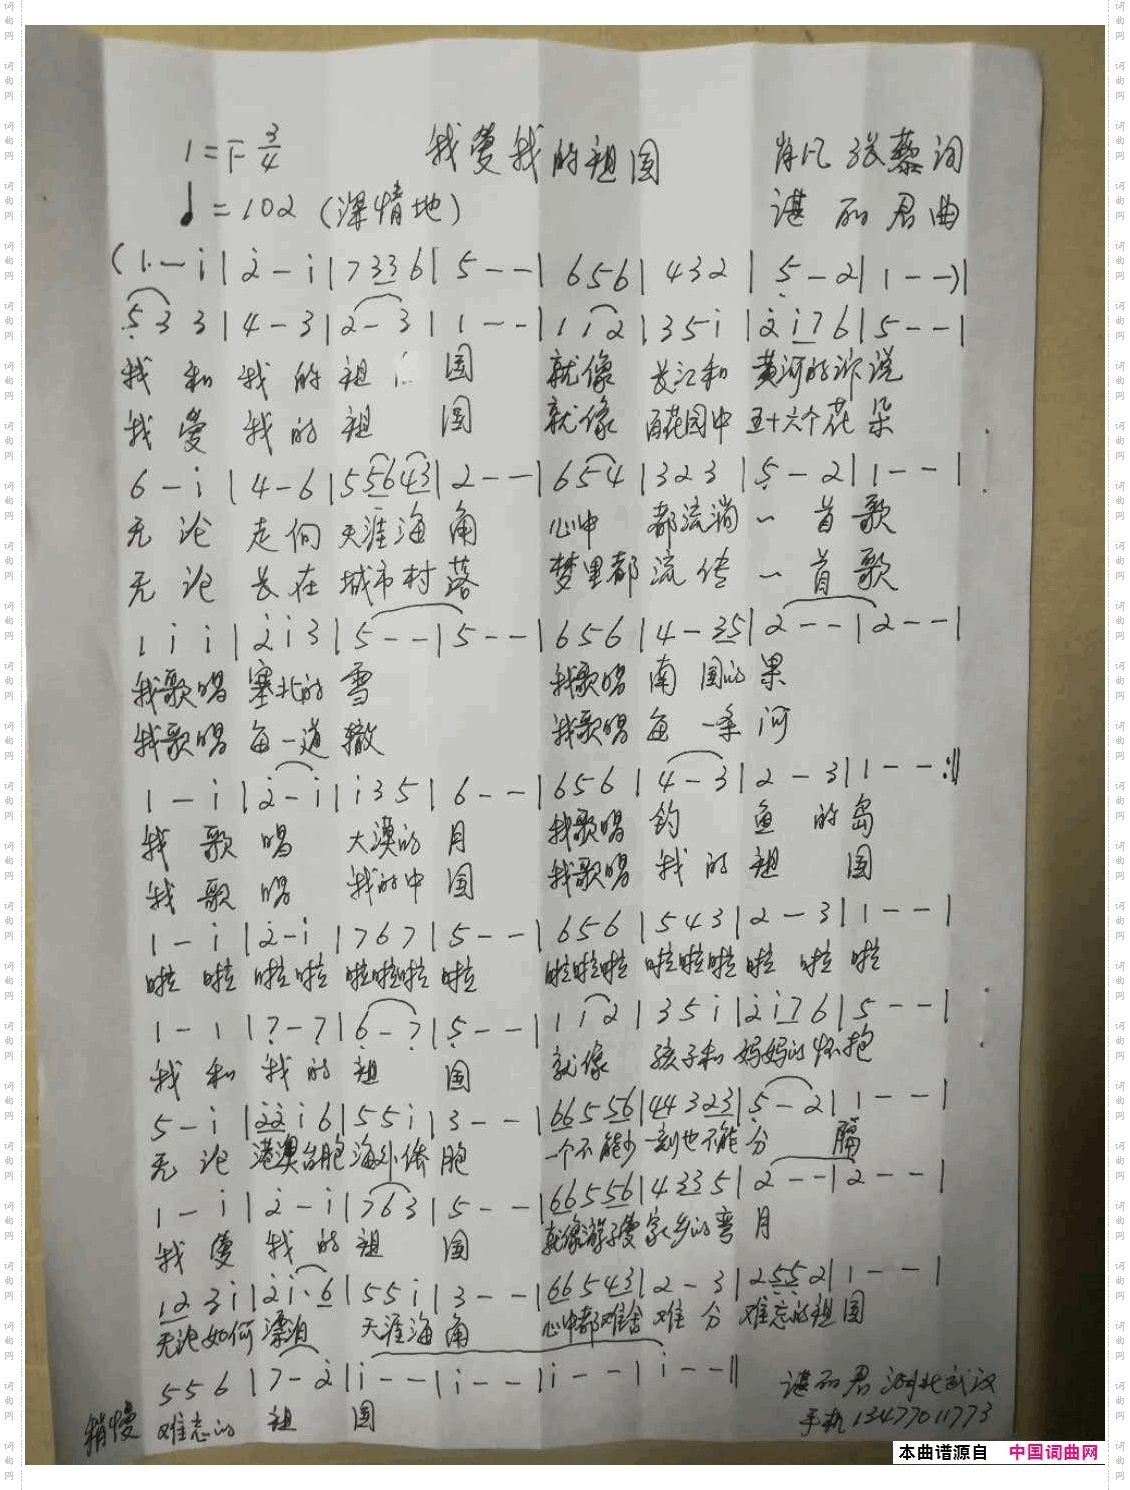 1=F 3/4 我爱我的祖国 肖凡 张藜词
♩=102 (深情地) 谌 君曲
(1·-i|2̇-i|7336|5--|656|432|5̣-2|1--)|
5̣33|4-3|2-3|1--|1i2|35i|2̇i76|5--|
我和我的祖国 就像 长江和 黄河的诉说
我爱我的祖国 就像 百花园中 五十六个花朵
6-i|4-6|55643|2--|654|323|5̣-2|1--|
无论 走向 天涯海角 心中 都流淌一首歌
无论 长在 城市村落 梦里都流传一首歌
1ii|2̇i3|5--|5--|656|4-35|2--|2--|
我歌唱 塞北的雪 我歌唱 南国的果
我歌唱 每一道辙 我歌唱 每一条河
1-i|2̇-i|i35|6--|656|4-3|2-3|1--:‖
我歌唱 大漠的月 我歌唱 钓鱼的岛
我歌唱 我的中国 我歌唱 我的祖国
1-i|2̇-i|767|5--|656|543|2-3|1--|
啦啦 啦啦 啦啦啦 啦 啦啦啦 啦啦啦 啦啦啦
1-1|7̣-7̣|6̣-7̣|5̣--|1i2|35i|2̇i76|5--|
我和我的祖国 就像 孩子和 妈妈的怀抱
5-i|2̇2̇i6|55i|3--|665556|44323|5̣-2|1--|
无论 港澳台胞 海外侨胞 一个不能少 一刻也不能分隔
1-i|2̇-i|763|5--|665556|4335|2--|2--|
我爱我的祖国 就像游子爱家乡的弯月
123i|2̇i·6|55i|3--|66543|2-3|25̣5̣2|1--|
无论如何漂泊 天涯海角 心中都难舍难分 难忘的祖国
556|7-2̇|i--|i--|i--|i--‖ 谌 君 湖北武汉
稍慢 难忘的祖国 手机13477011773
本曲谱源自 中国词曲网
词曲网